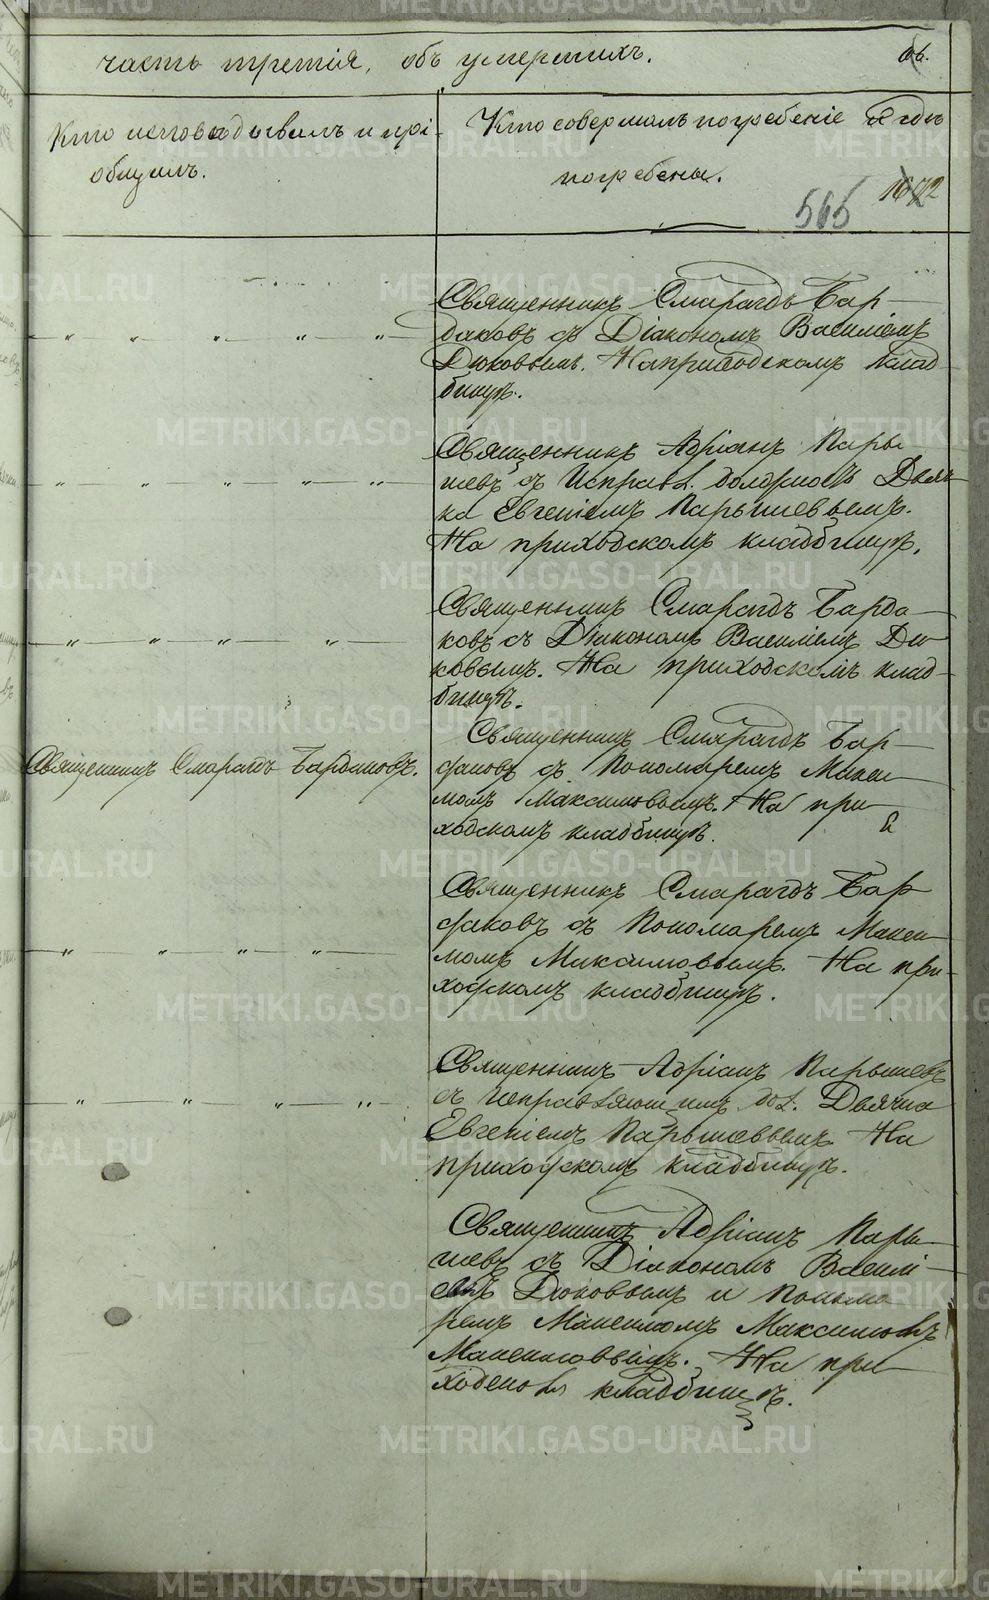 часть третія, объ умершихъ.
Кто исповѣдывалъ и прі-
общилъ.
Кто совершалъ погребеніе и гдѣ
погребены.
565
Священникъ Смарагдъ Бар-
даковъ съ Діакономъ Василіемъ
Дюковымъ. На приходскомъ клад-
бищѣ.
Священникъ Адріанъ Пары-
шевъ съ Исправл. должность Дьяч-
ка Евгеніемъ Парышевымъ.
На приходскомъ кладбищѣ.
Священникъ Смарагдъ Барда-
ковъ съ Діакономъ Василіемъ Дю-
ковымъ. На приходскомъ клад-
бищѣ.
Священникъ Смарагдъ Бардаковъ.
Священникъ Смарагдъ Бар-
даковъ съ Пономаремъ Макси-
момъ Максимовымъ. На при-
ходскомъ кладбищѣ.
Священникъ Смарагдъ Бар-
даковъ съ Пономаремъ Макси-
момъ Максимовымъ. На при-
ходскомъ кладбищѣ.
Священникъ Адріанъ Парышевъ
съ исправляющимъ дол. Дьячка
Евгеніемъ Парышевымъ На
приходскомъ кладбищѣ.
Священникъ Адріанъ Пары-
шевъ съ Діакономъ Василі-
емъ Дюковымъ и Понома
ремъ Максимомъ
Максимовымъ. На при-
ходскомъ кладбищѣ.
METRIKI.GASO-URAL.RU